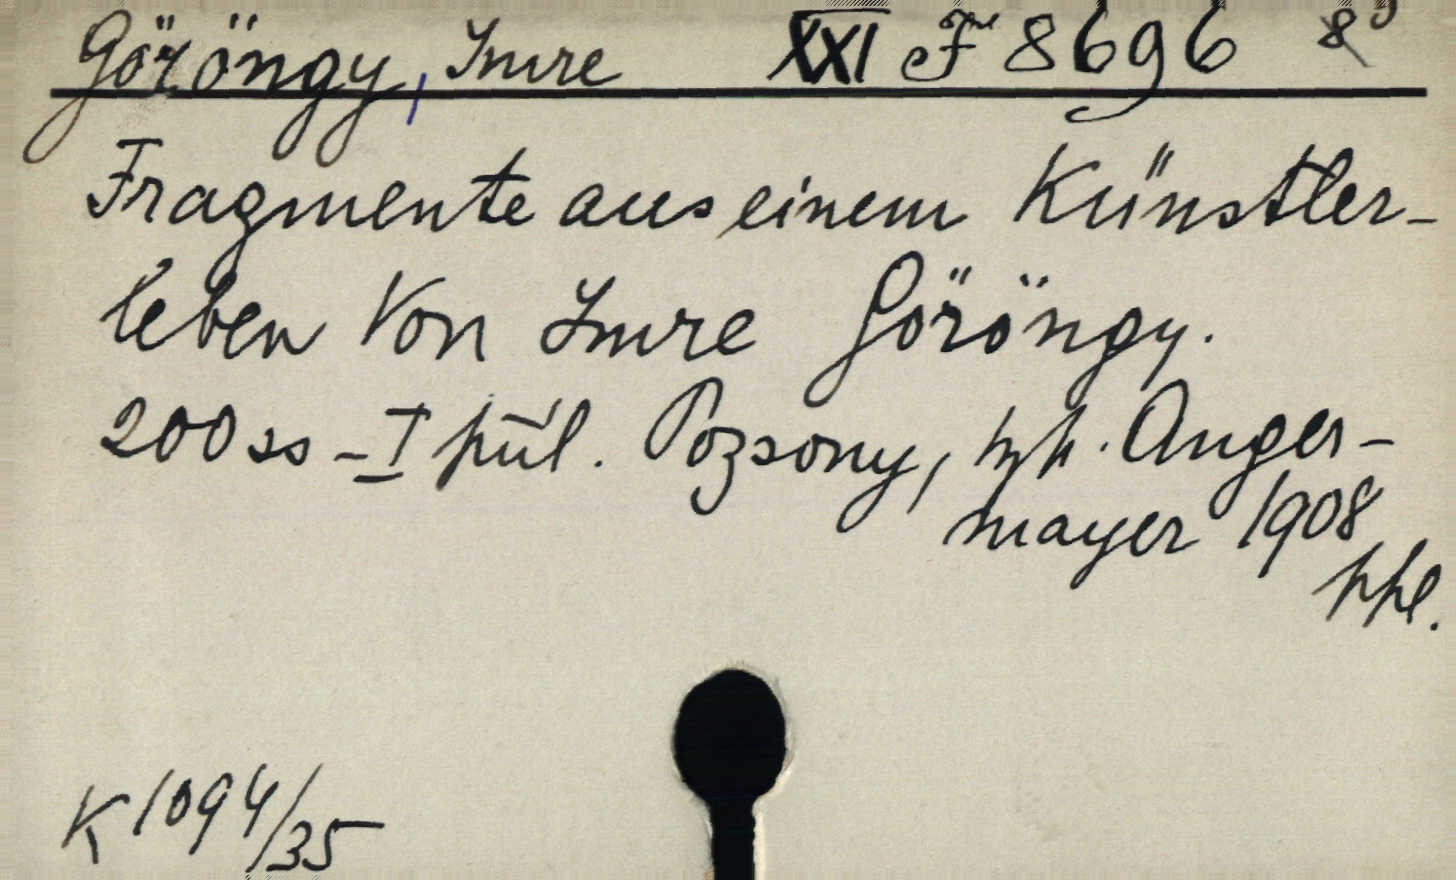 Göröngy, Imre XXI F 8696 8°
Fragmente aus einem Künstler-
leben von Imre Göröngy.
200 ss - I púl. Pozsony, Anger-
mayer 1908
ppl.
K 1094/35